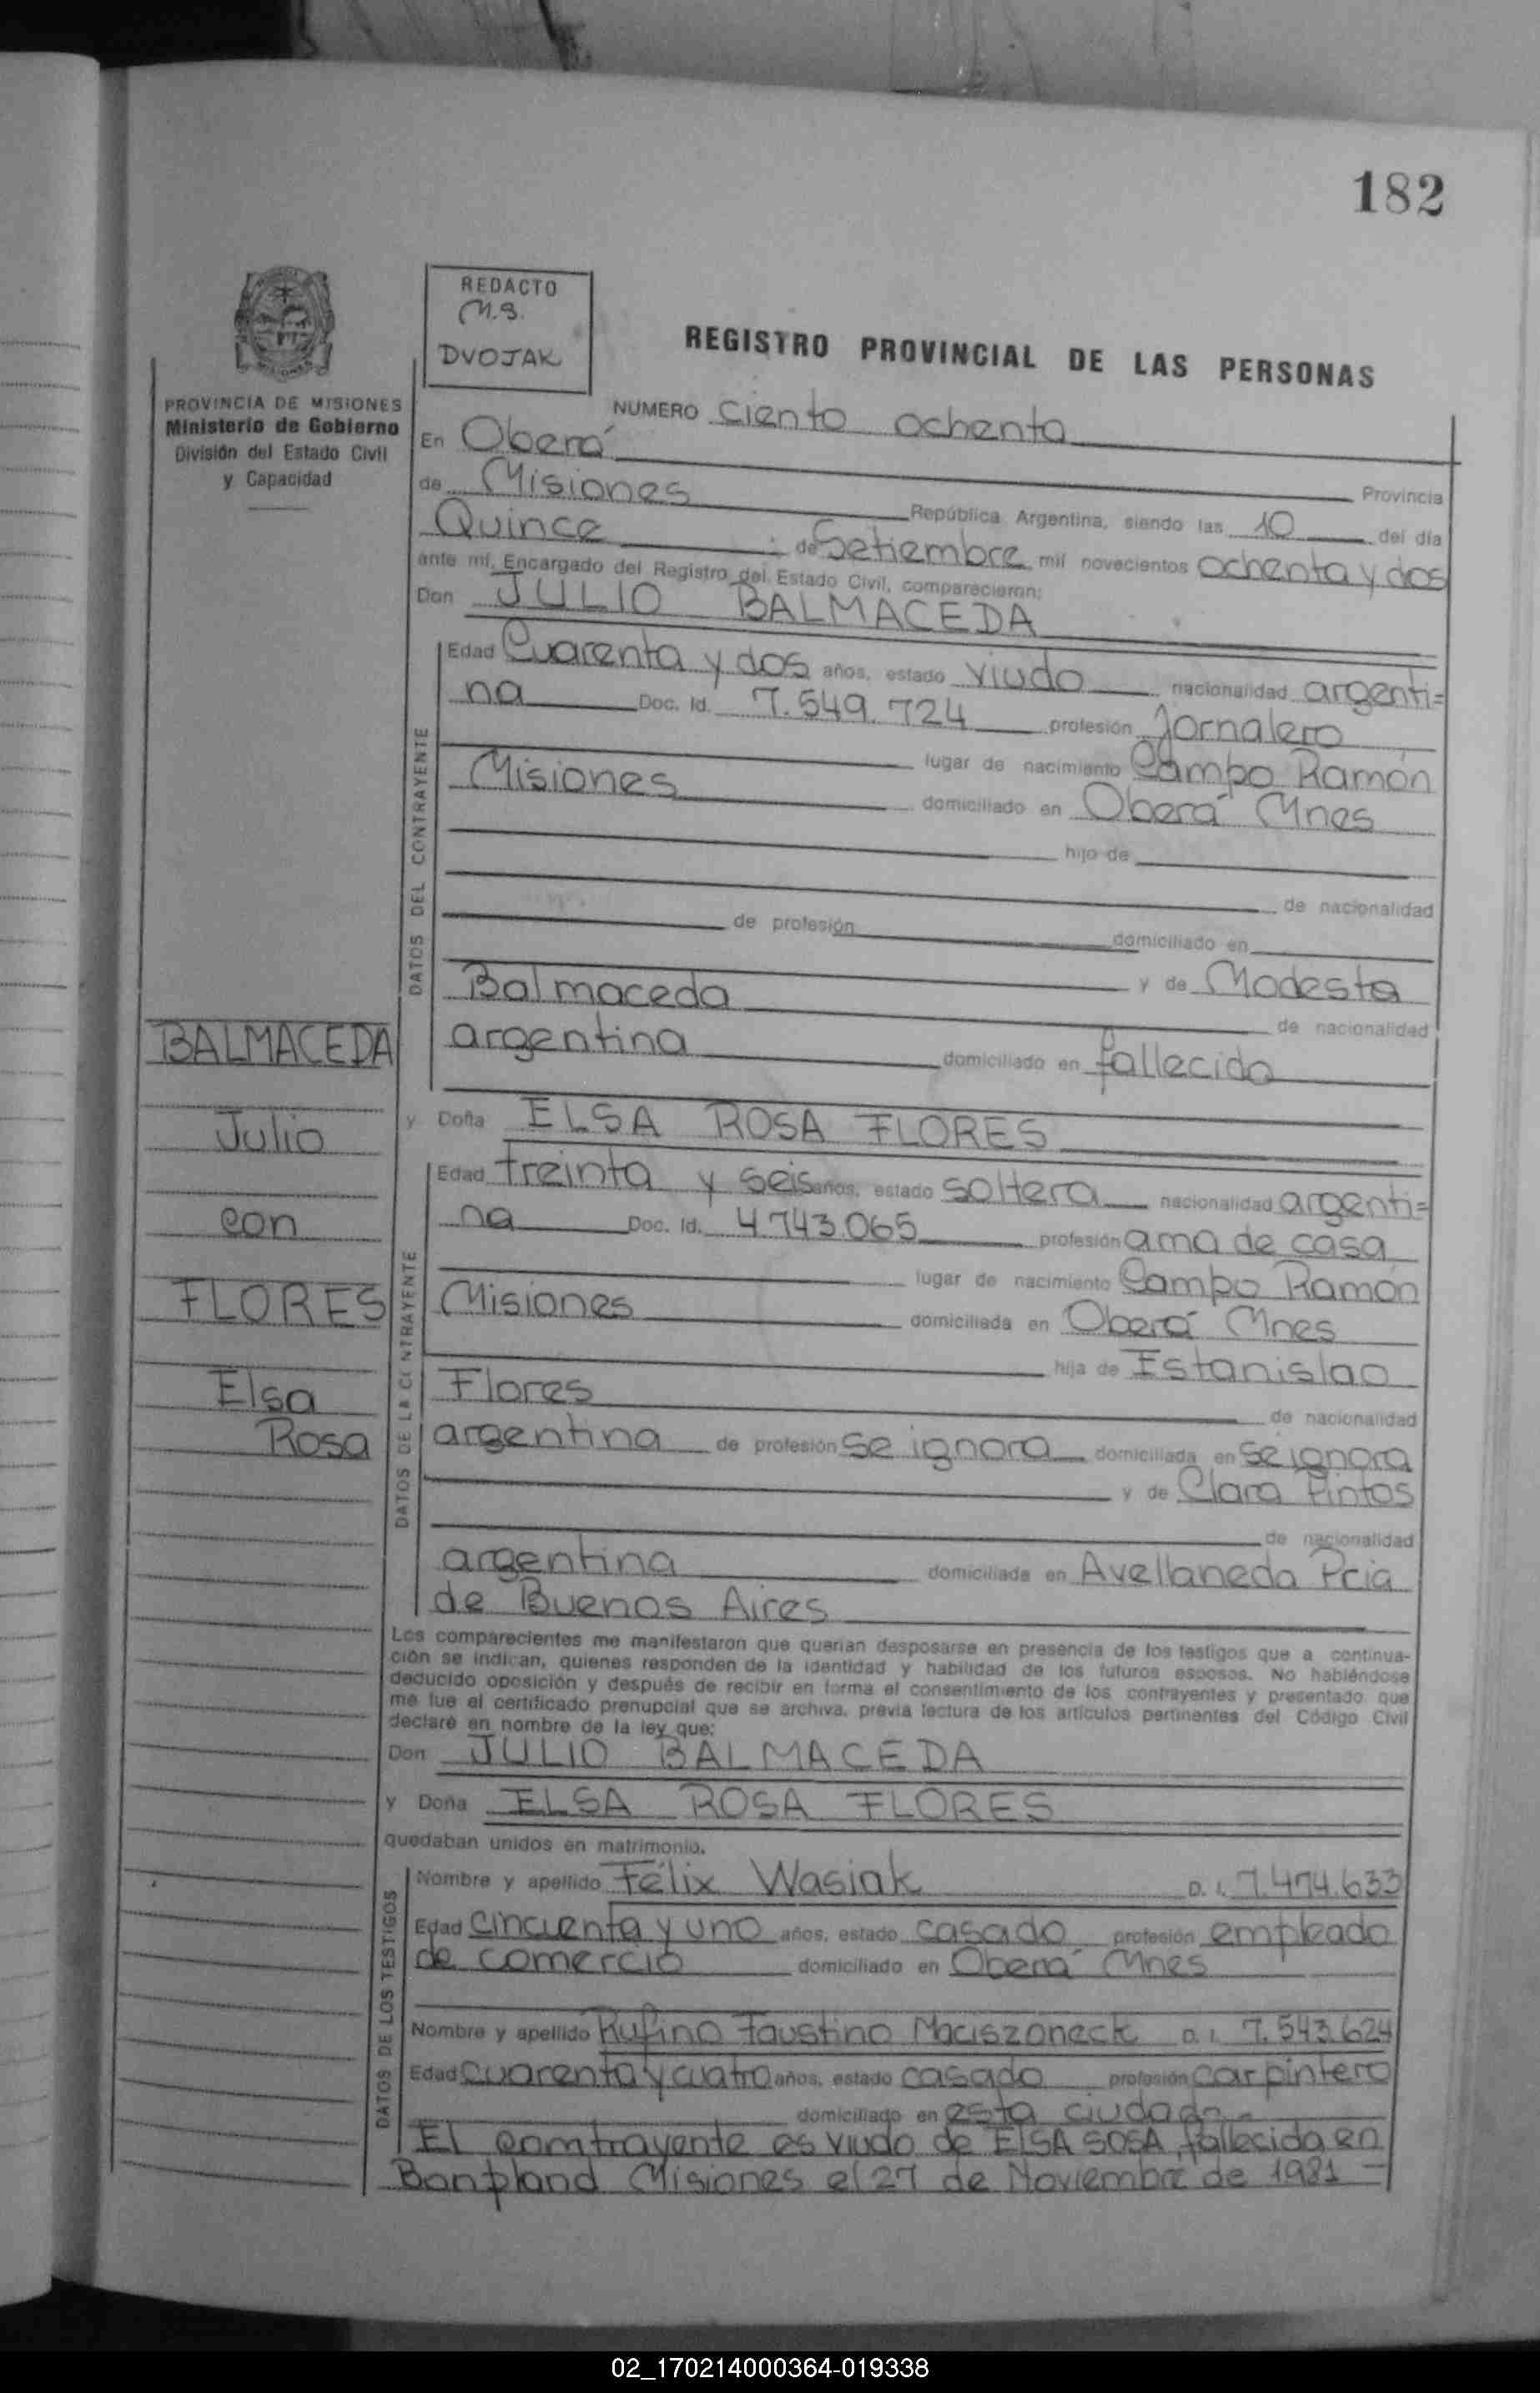 182
REDACTO
M.S.
DVOJAK
REGISTRO PROVINCIAL DE LAS PERSONAS
PROVINCIA DE MISIONES
Ministerio de Gobierno
División del Estado Civil
y Capacidad
NUMERO Ciento ochenta
En Oberá
Provincia
de Misiones República Argentina, siendo las 10 del día
Quince de Setiembre mil novecientos ochenta y dos
ante mí, Encargado del Registro del Estado Civil, comparecieron:
Don JULIO BALMACEDA
DATOS DEL CONTRAYENTE
Edad Cuarenta y dos años, estado viudo nacionalidad argenti=
na Doc. Id. 7.549.724 profesión Jornalero
lugar de nacimiento Campo Ramón
Misiones domiciliado en Oberá Mnes
hijo de
de nacionalidad
de profesión domiciliado en
y de Modesta
Balmaceda de nacionalidad
argentina domiciliado en fallecida
BALMACEDA
Julio
con
FLORES
Elsa
Rosa
y Doña ELSA ROSA FLORES
DATOS DE LA CONTRAYENTE
Edad treinta y seis años, estado soltera nacionalidad argenti=
na Doc. Id. 4.743.065 profesión ama de casa
lugar de nacimiento Campo Ramón
Misiones domiciliada en Oberá Mnes
hija de Estanislao
Flores de nacionalidad
argentina de profesión se ignora domiciliada en se ignora
y de Clara Pintos
de nacionalidad
argentina domiciliada en Avellaneda Pcia
de Buenos Aires
Los comparecientes me manifestaron que querían desposarse en presencia de los testigos que a continua-
ción se indican, quienes responden de la identidad y habilidad de los futuros esposos. No habiéndose
deducido oposición y después de recibir en forma el consentimiento de los contrayentes y presentado que
me fue el certificado prenupcial que se archiva, previa lectura de los artículos pertinentes del Código Civil
declaré en nombre de la ley que:
Don JULIO BALMACEDA
y Doña ELSA ROSA FLORES
quedaban unidos en matrimonio.
DATOS DE LOS TESTIGOS
Nombre y apellido Félix Wasiak D. I. 7.474.633
Edad cincuenta y uno años, estado casado profesión empleado
de comercio domiciliado en Oberá Mnes
Nombre y apellido Rufino Faustino Maciszoneck D. I. 7.543.624
Edad cuarenta y cuatro años, estado casado profesión carpintero
domiciliado en esta ciudad.-
El contrayente es viudo de ELSA SOSA, fallecida en
Bonpland Misiones el 27 de Noviembre de 1981 -
02_170214000364-019338